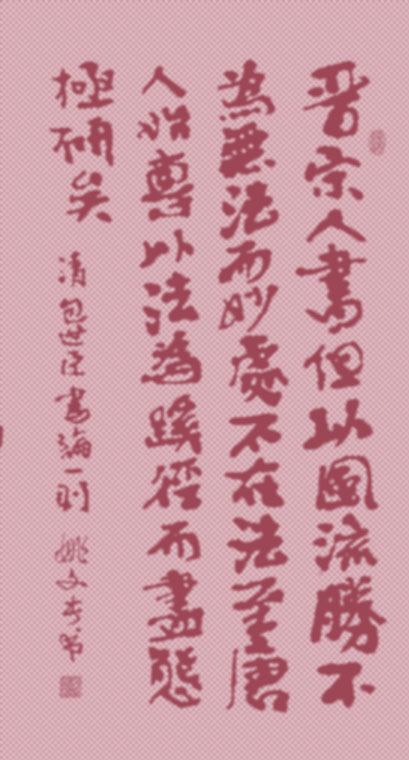 晋宋人書但以風流勝不
為無法而妙處不在法至唐
人始專以法為蹊徑而盡態
極妍矣 清包世臣書論一則 姚文